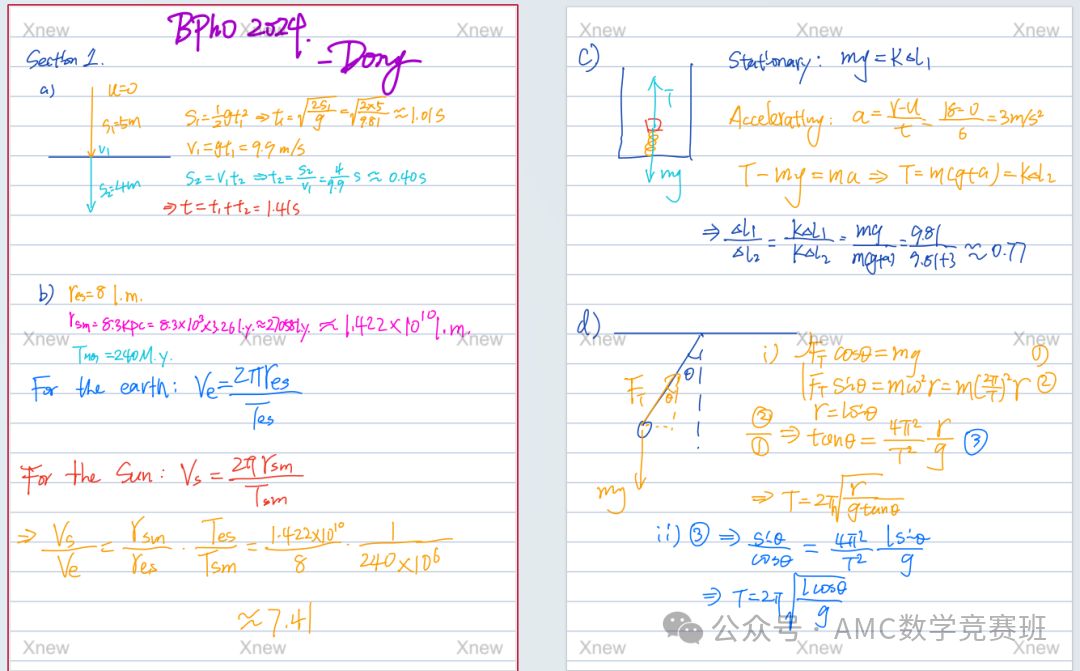 Xnew Xnew Xnew
BPhO 2024.
- Dong
Section 1.
a)
u=0
S₁=5m
V₁
S₂=4m
S₁=½gt₁² ⇒ t₁=√(2S₁/g)=√(2×5/9.81)≈1.01s
V₁=gt₁=9.9m/s
S₂=V₁t₂ ⇒ t₂=S₂/V₁=4/9.9 s ≈ 0.40s
⇒ t=t₁+t₂=1.41s
b) r_es=8 l.m.
r_sm=8.3kpc=8.3×10³×3.26 l.y.≈27058 l.y. ≈ 1.422×10¹⁰ l.m.
Xnew Xnew Xnew
=240M.y.
For the earth: Ve=2πr_es/T_es
For the Sun: Vs=2πr_sm/T_sm
⇒ Vs/Ve = r_sm/r_es · T_es/T_sm = 1.422×10¹⁰/8 · 1/(240×10⁶)
≈7.41
Xnew Xnew Xnew
Xnew Xnew Xnew
c)
T
mg
Stationary: mg=KΔL₁
Accelerating: a=(v-u)/t=(18-0)/6=3m/s²
T-mg=ma ⇒ T=m(g+a)=KΔL₂
⇒ ΔL₁/ΔL₂=KΔL₁/KΔL₂=mg/m(g+a)=9.81/(9.81+3)≈0.77
d)
Xnew Xnew Xnew
F_T
θ
θ
mg
i) F_T cosθ=mg ①
F_T sinθ=mω²r=m(2π/T)²r ②
r=lsinθ
②/① ⇒ tanθ=4π²/T² r/g ③
⇒ T=2π√(r/(gtanθ))
ii) ③ ⇒ sinθ/cosθ=4π²/T² lsinθ/g
⇒ T=2π√(lcosθ/g)
公众号 · AMC数学竞赛班
Xnew Xnew Xnew